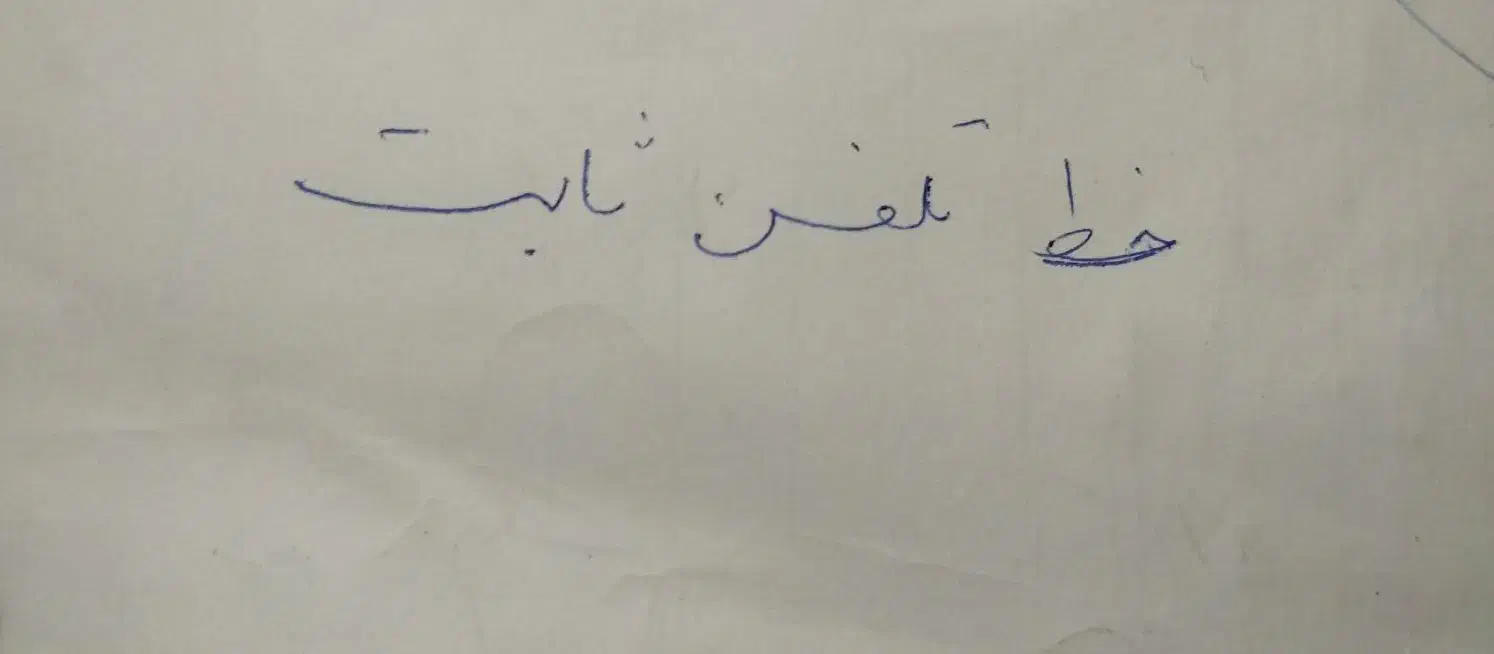 خط تلفن ثابت